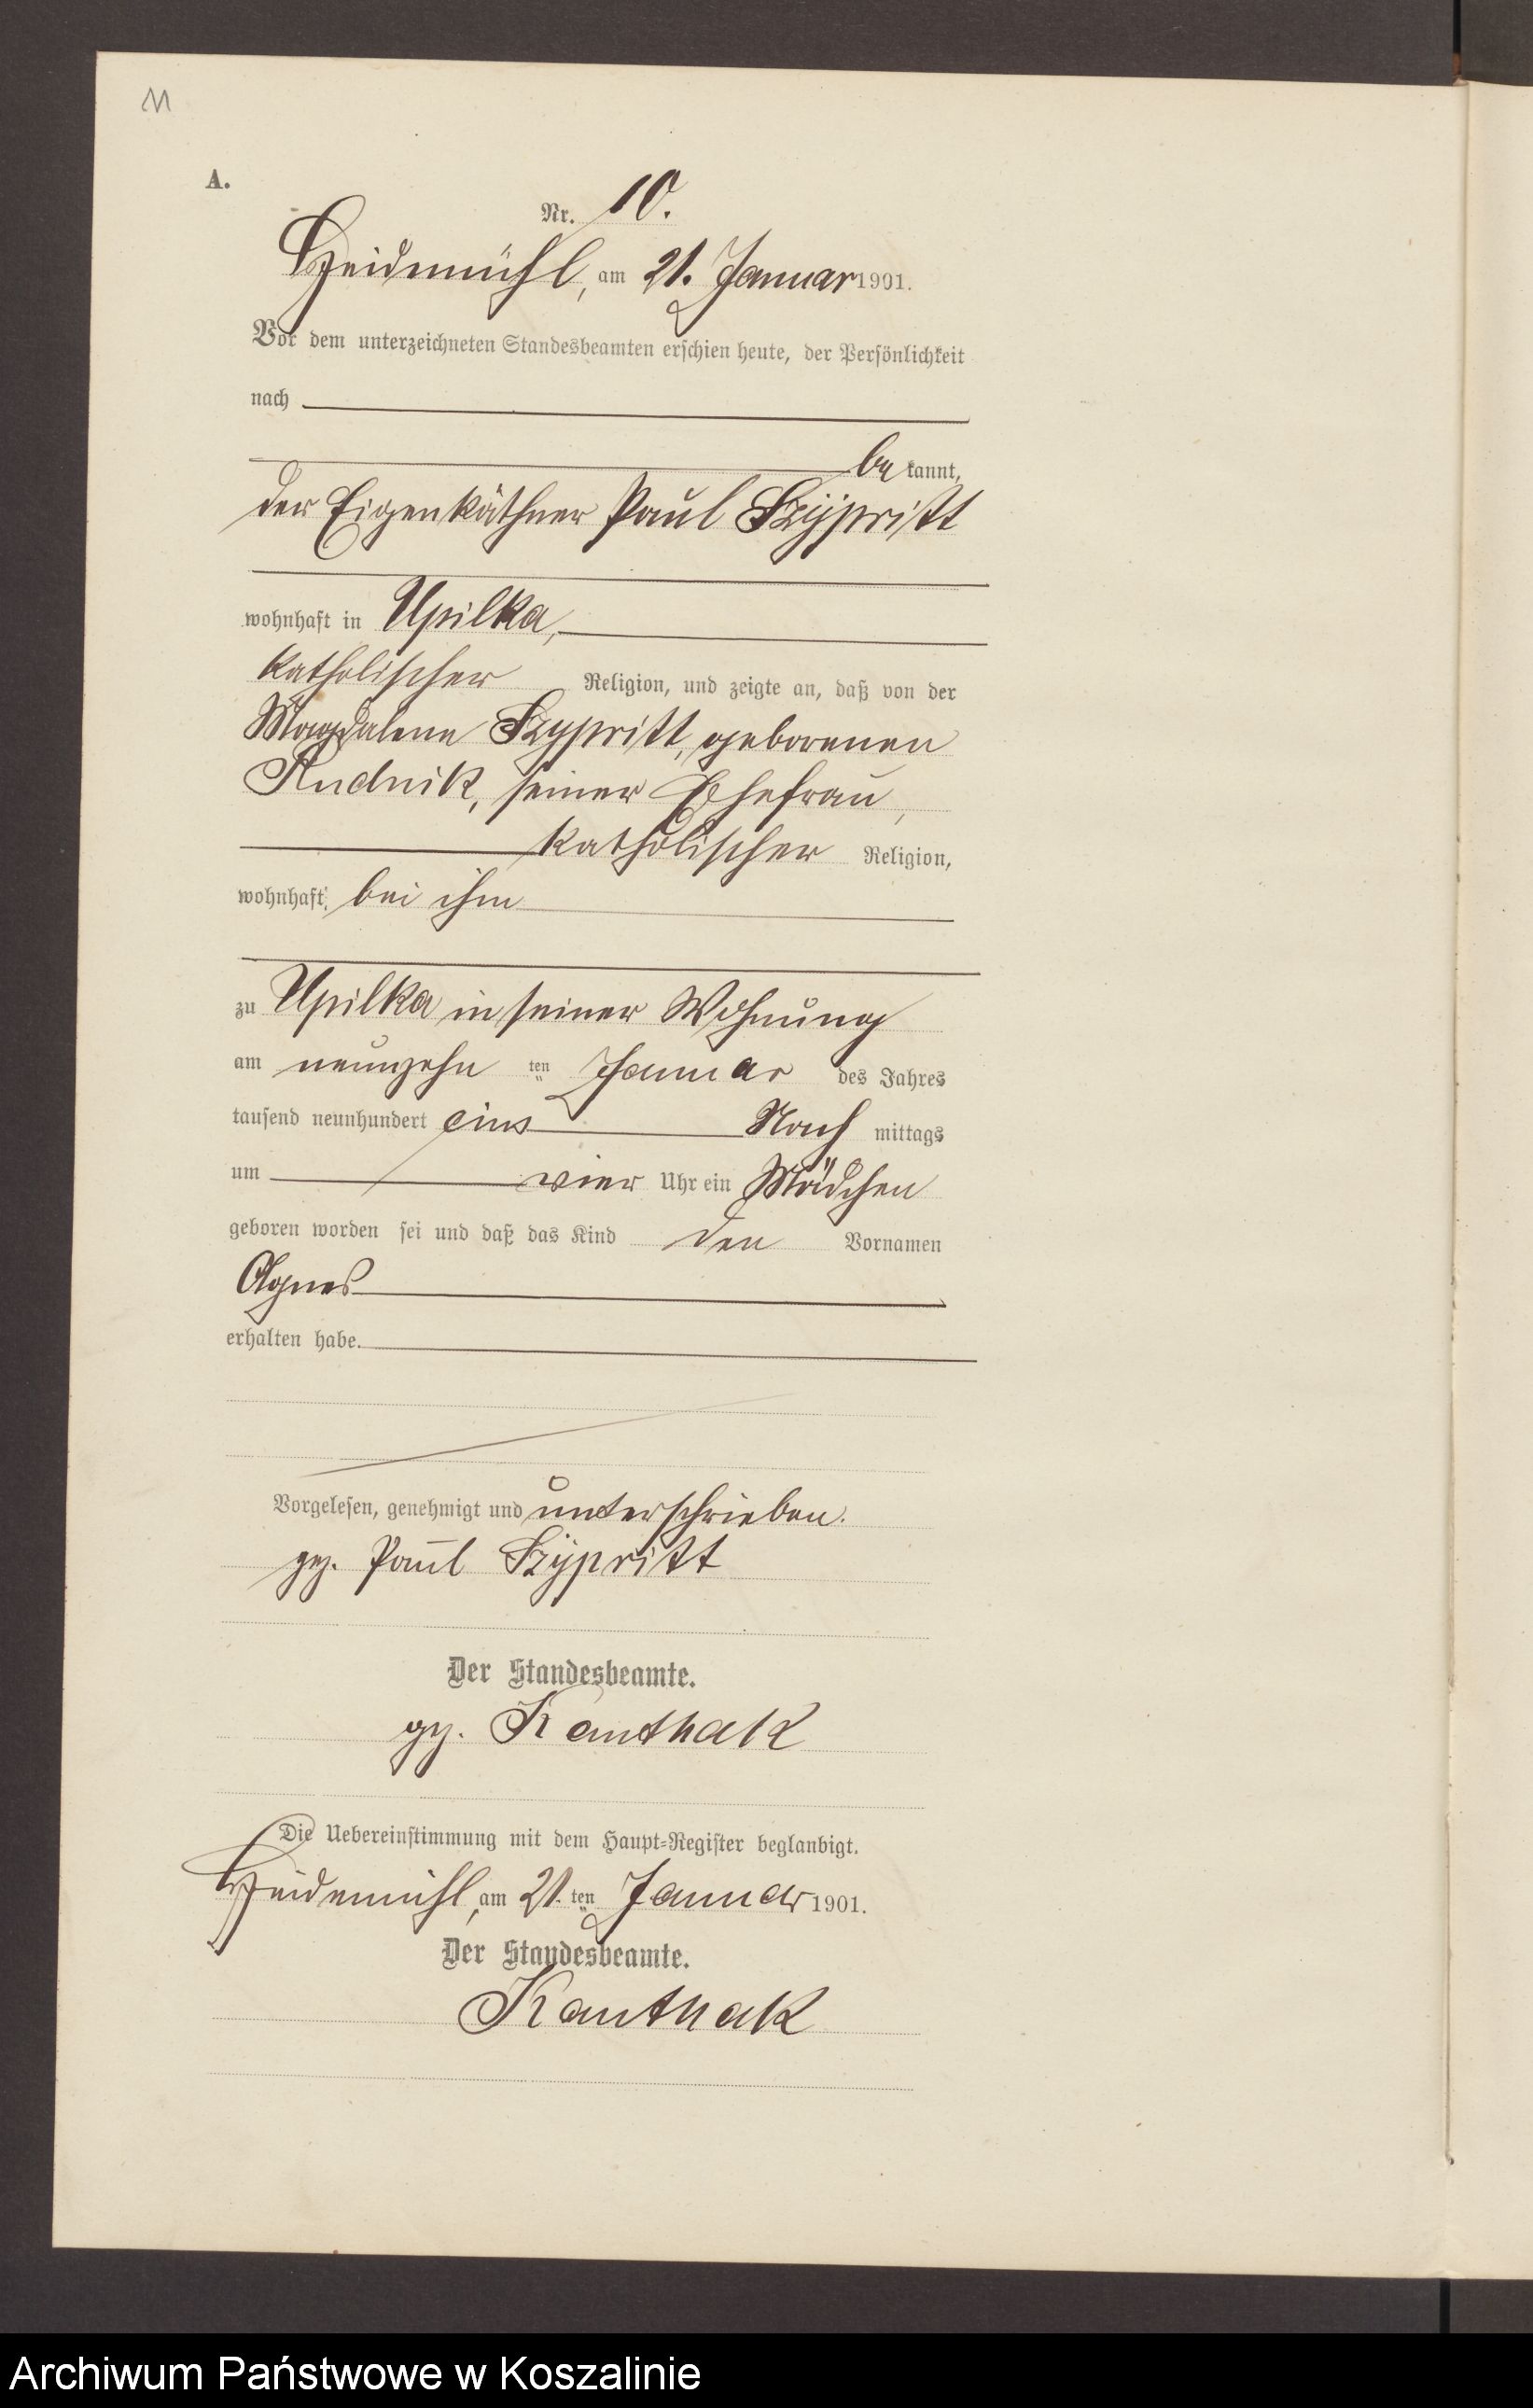 11
A.
Nr. 10.
Heidemühl, am 21. Januar 1901.
Vor dem unterzeichneten Standesbeamten erschien heute, der Persönlichkeit
nach
be kannt,
der Eigenkäthner Paul Szÿpritt
wohnhaft in Upilka,
katholischer Religion, und zeigte an, daß von der
Magdalena Szypritt, geborenen
Rudnik, seiner Ehefrau,
katholischer Religion,
wohnhaft bei ihm
zu Upilka in seiner Wohnung
am neunzehn ten Januar des Jahres
tausend neunhundert eins Nach mittags
um vier Uhr ein Mädchen
geboren worden sei und daß das Kind den Vornamen
Agnes
erhalten habe.
Vorgelesen, genehmigt und unterschrieben.
gez. Paul Szÿpritt
Der Standesbeamte.
gez. Kanthak
Die Uebereinstimmung mit dem Haupt-Register beglaubigt.
Heidemühl, am 21. ten Januar 1901.
Der Standesbeamte.
Kanthak
Archiwum Państwowe w Koszalinie